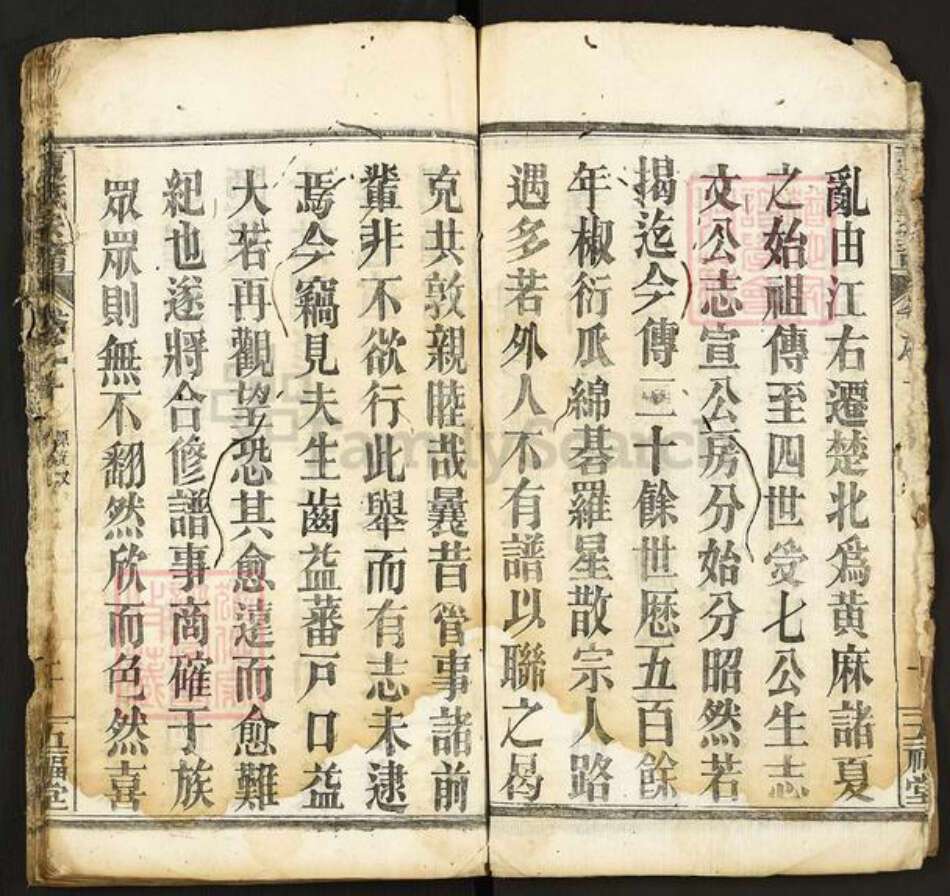 亂由江右遷楚北為黃麻諸夏
之始祖傳至四世受七公生志
文公志宣公房分始分昭然若
揭迄今傳二十餘世歷五百餘
年椒衍瓜綿碁羅星散宗人路
遇多若外人不有譜以聯之曷
克共敦親睦哉曩昔管事諸前
輩非不欲行此舉而有志未逮
焉今竊見夫生齒益蕃戶口益
大若再觀望恐其愈遠而愈難
紀也遂將合修譜事商確于族
眾眾則無不翻然欣而色然喜
五福堂
FamilySearch